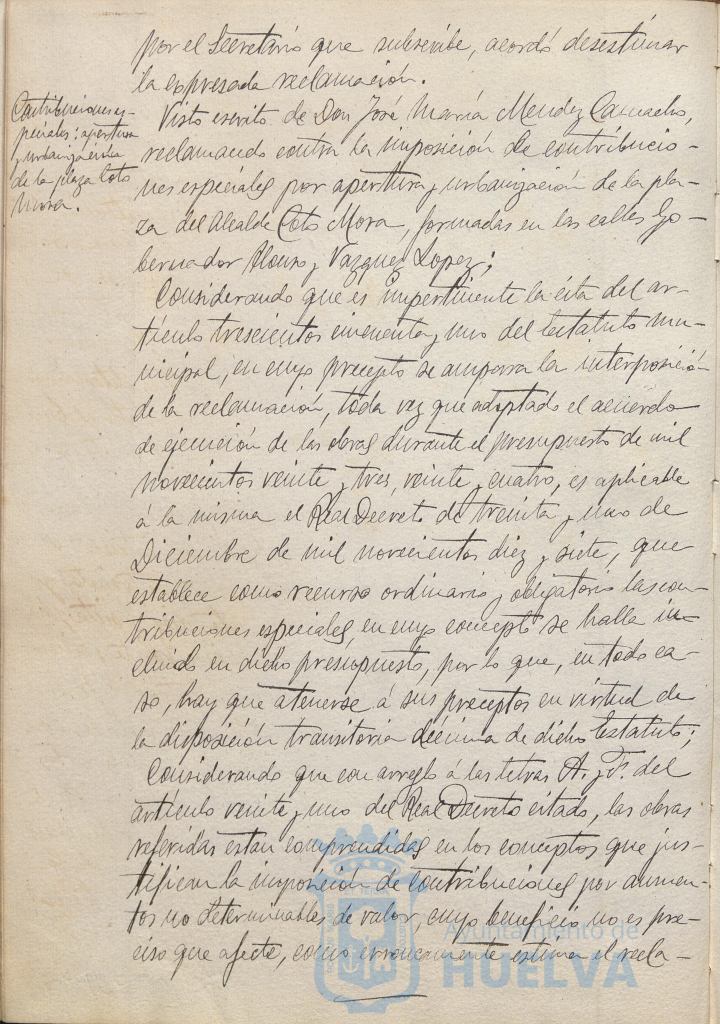 por el Secretario que subscribe, acordó desestimar
la expresada reclamación.
Contribuciones es-
peciales: apertura
y urbanización
de la plaza Coto
Mora.
Visto escrito de Don José María Mendez Camacho,
reclamando contra la imposición de contribucio-
nes especiales por apertura y urbanización de la pla-
za del Alcalde Coto Mora, formadas en las calles Go-
bernador Alonso y Vazquez Lopez;
Considerando que es impertinente la cita del ar-
tículo trescientos cincuenta y uno del Estatuto mu-
nicipal, en cuyo precepto se amparra la interposición
de la reclamación, toda vez que adoptado el acuerdo
de ejecución de las obras durante el presupuesto de mil
novecientos veinte y tres, veinte y cuatro, es aplicable
á la misma el Real Decreto de treinta y uno de
Diciembre de mil novecientos diez y siete, que
establece como recurso ordinario y obligatorio las con-
tribuciones especiales, en cuyo concepto se halla in-
cluido en dicho presupuesto, por lo que, en todo ca-
so, hay que atenerse á sus preceptos en virtud de
la disposición transitoria décima de dicho Estatuto;
Considerando que con arreglo á las letras A. y F. del
artículo veinte y uno del Real Decreto citado, las obras
referidas estan comprendidas en los conceptos que jus-
tifican la imposición de contribuciones por aumen-
tos no determinables de valor, cuyo beneficio no es pre-
ciso que afecte, como erroneamente estima el recla-
Ayuntamiento de
HUELVA